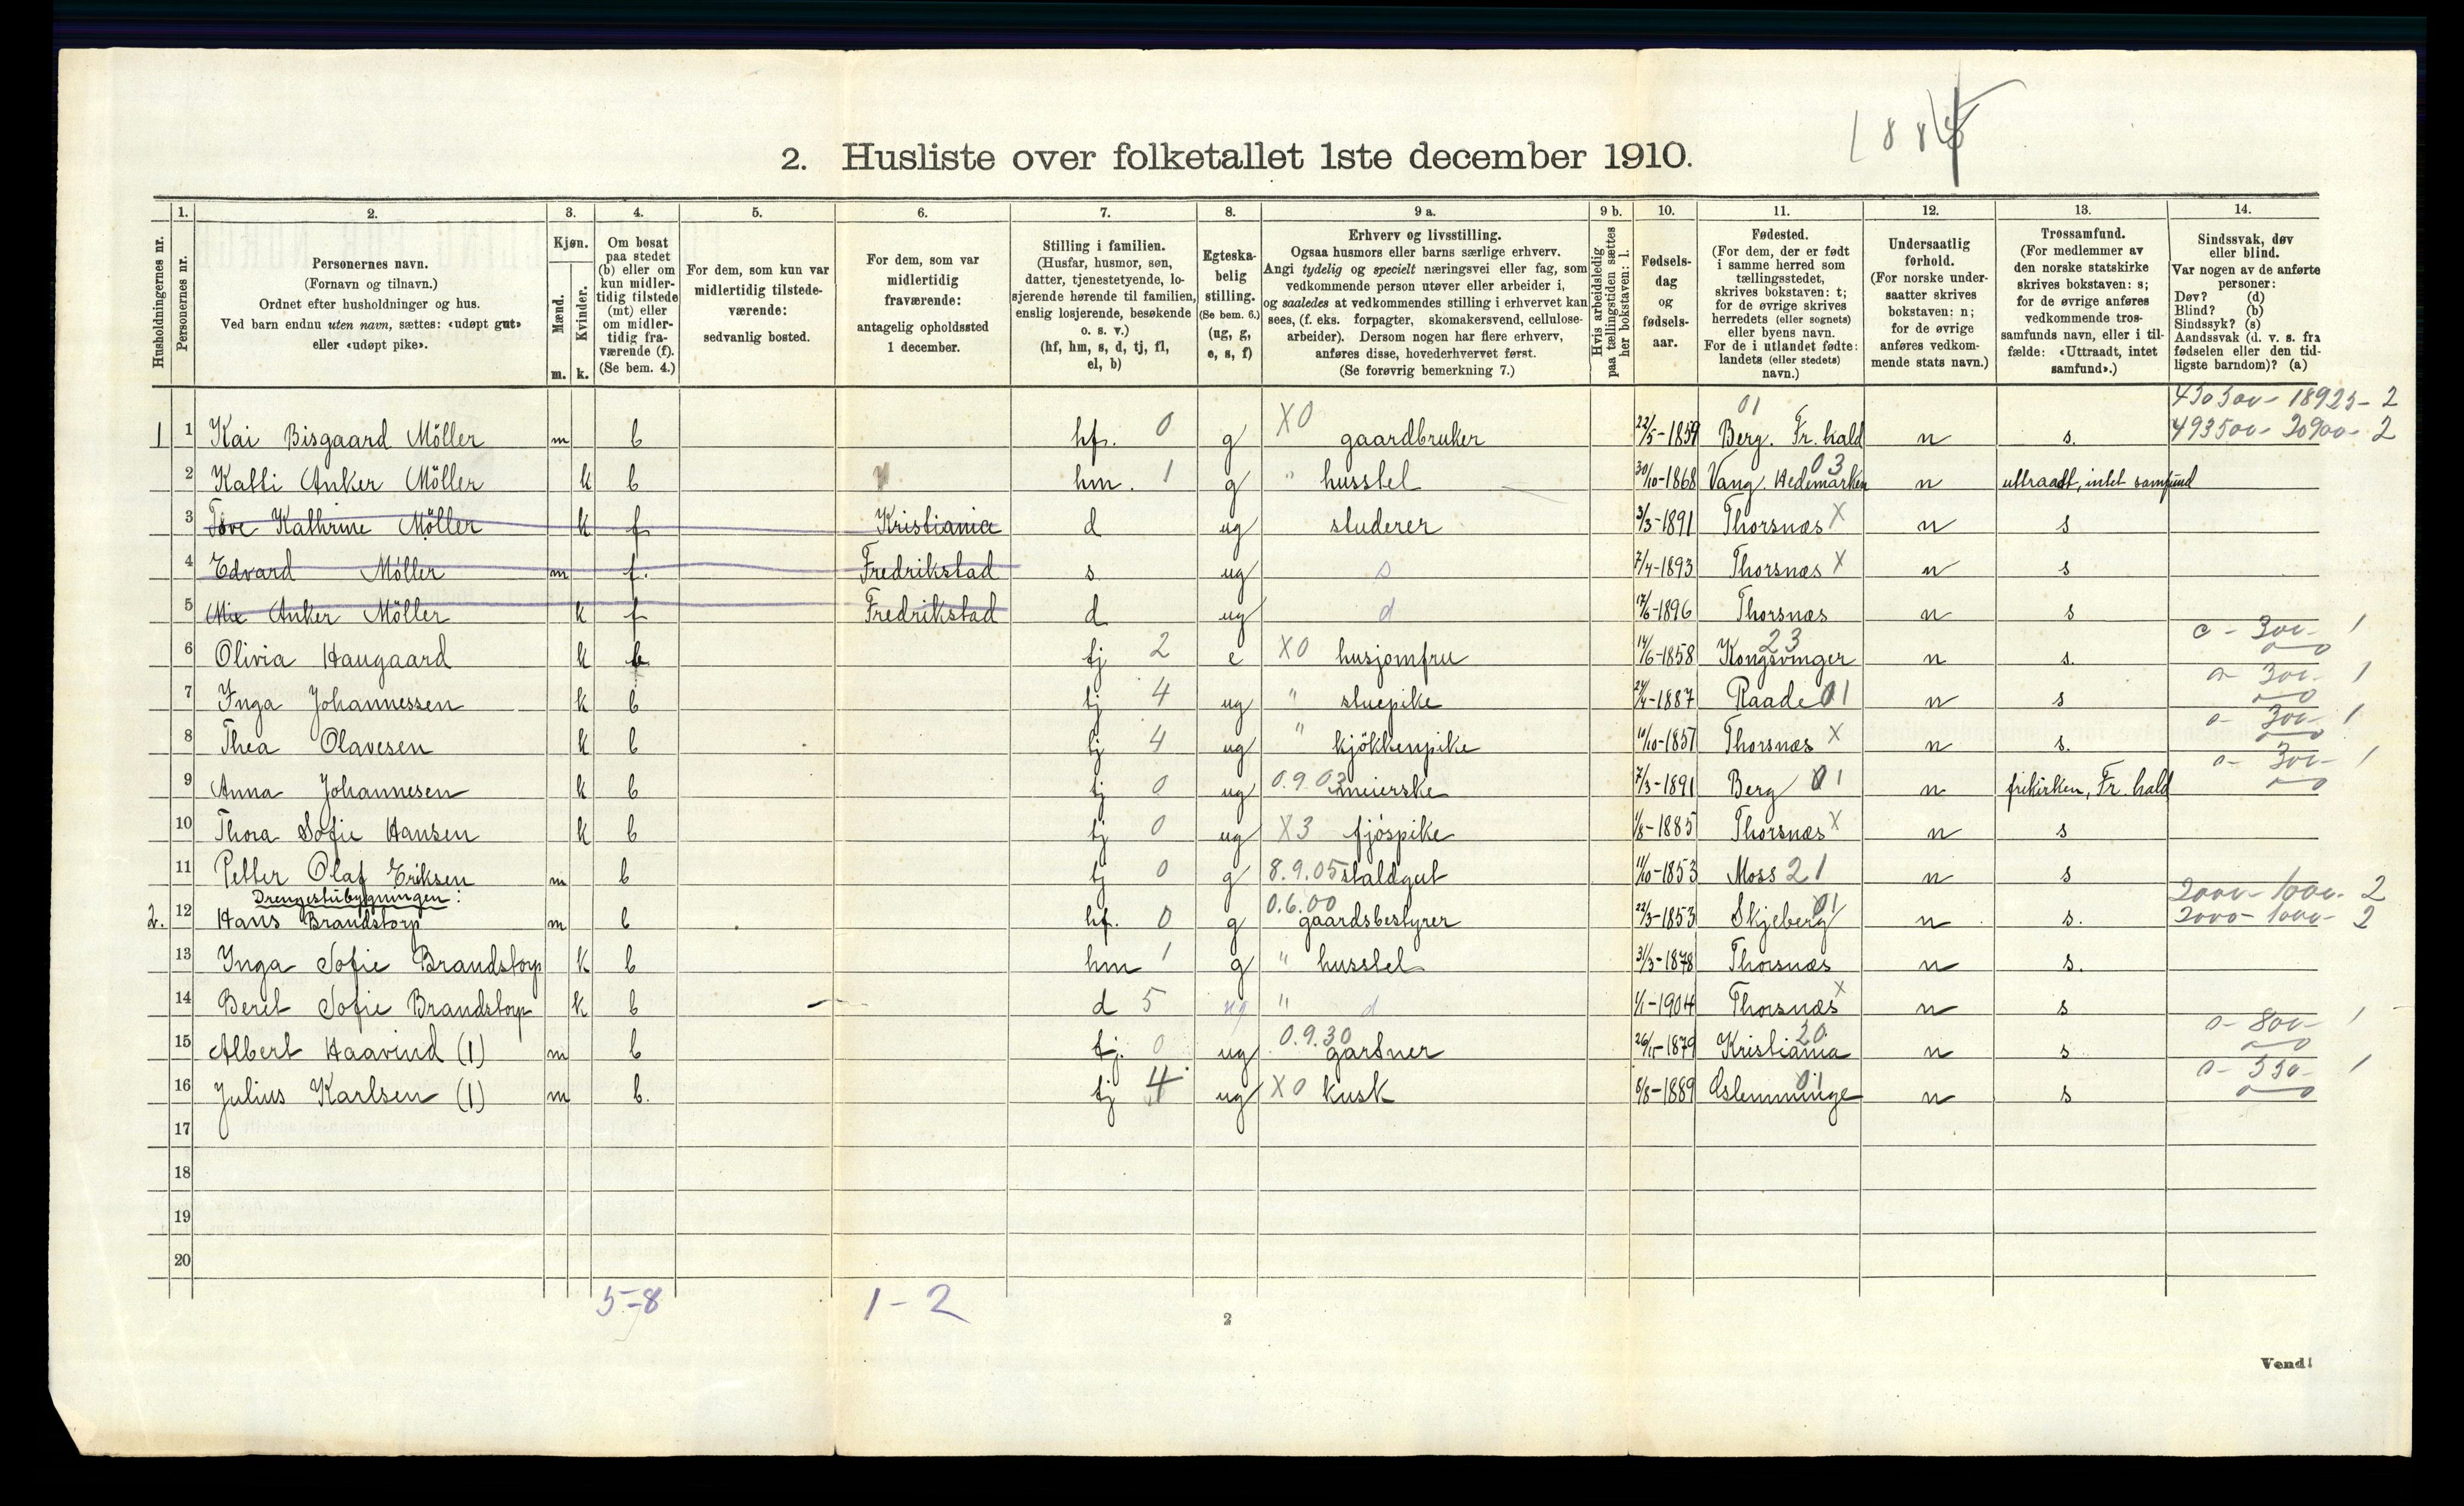 1884
2. Husliste over folketallet 1ste december 1910.
Husholdningernes nr.
1. Personernes nr.
2. Personernes navn. (Fornavn og tilnavn.) Ordnet efter husholdninger og hus. Ved barn endnu uten navn, sættes: «udøpt gut» eller «udøpt pike».
3. Kjøn. Mænd. m. Kvinder. k.
4. Om bosat paa stedet (b) eller om kun midlertidig tilstede (mt) eller om midlertidig fraværende (f). (Se bem. 4.)
5. For dem, som kun var midlertidig tilstedeværende: sedvanlig bosted.
6. For dem, som var midlertidig fraværende: antagelig opholdssted 1 december.
7. Stilling i familien. (Husfar, husmor, søn, datter, tjenestetyende, losjerende hørende til familien, enslig losjerende, besøkende o. s. v.) (hf, hm, s, d, tj, fl, el, b)
8. Egteskabelig stilling. (Se bem. 6.) (ug, g, e, s, f)
9 a. Erhverv og livsstilling. Ogsaa husmors eller barns særlige erhverv. Angi tydelig og specielt næringsvei eller fag, som vedkommende person utøver eller arbeider i, og saaledes at vedkommendes stilling i erhvervet kan sees, (f. eks. forpagter, skomakersvend, cellulosearbeider). Dersom nogen har flere erhverv, anføres disse, hovederhvervet først. (Se forøvrig bemerkning 7.)
9 b. Hvis arbeidsledig paa tællingstiden sættes her bokstaven: l.
10. Fødselsdag og fødselsaar.
11. Fødested. (For dem, der er født i samme herred som tællingsstedet, skrives bokstaven: t; for de øvrige skrives herredets (eller sognets) eller byens navn. For de i utlandet fødte: landets (eller stedets) navn.)
12. Undersaatlig forhold. (For norske undersaatter skrives bokstaven: n; for de øvrige anføres vedkommende stats navn.)
13. Trossamfund. (For medlemmer av den norske statskirke skrives bokstaven: s; for de øvrige anføres vedkommende trossamfunds navn, eller i tilfælde: «Uttraadt, intet samfund».)
14. Sindssvak, døv eller blind. Var nogen av de anførte personer: Døv? (d) Blind? (b) Sindssyk? (s) Aandssvak (d. v. s. fra fødselen eller den tidligste barndom)? (a)
1 1 Kai Bisgaard Möller m b hf. 0 g X0 gaardbruker 22/5-1859 01 Berg. Fr. hald n s. 493500- 20900- 2
2 Katti Anker Möller k b hm. 1 g " husstel 30/10-1868 Vang. Hedemarken 03 n uttraadt, intet samfund
3 Tove Kathrine Möller k f Kristiania d ug studerer 3/3-1891 Thorsnæs X n s
4 Edvard Möller m f. Fredrikstad s ug s 7/4-1893 Thorsnæs X n s
5 Mix Anker Möller k f Fredrikstad d ug d 17/6-1896 Thorsnæs n s
6 Olivia Haugaard k b tj 2 e X0 husjomfru 14/6-1858 23 Kongsvinger n s. 0 - 300- 1
7 Inga Johannessen k b tj 4 ug " stuepike 24/4-1887 Raade 01 n s 0 - 300- 1
8 Thea Olavesen k b tj 4 ug " kjökkenpike 10/10-1857 Thorsnæs X n s. 0- 300- 1
9 Anna Johannesen k b tj 0 ug 0.9.03 meierske 7/3-1891 Berg 01 n frikirken, Fr. hald 0- 300- 1
10 Thora Sofie Hansen k b tj 0 ug X3 fjöspike 1/8-1885 Thorsnæs X n s
11 Petter Olaf Eriksen m b tj 0 g 8.9.05 staldgut 11/10-1853 Moss 21 n s
Drengestubygningen:
2. 12 Hans Brandstorp m b hf. 0 g 0.6.00 gaardsbestyrer 22/3-1853 Skjeberg 01 n s. 2000- 1000- 2
13 Inga Sofie Brandstorp k b hm 1 g " husstel 31/3-1878 Thorsnæs n s.
14 Beret Sofie Brandstorp k b d 5 ug " d 1/1-1904 Thorsnæs X n s
15 Albert Haavind (1) m b tj. 0 ug 0.9.30 gartner 26/11-1879 Kristiania 20 n s 0- 800- 1
16 Julius Karlsen (1) m b. tj 4 ug X0 kusk 8/8-1889 Oslemminge 01 n s 0- 550- 1
17
18
19
20
5-8 1-2
2
Vend!